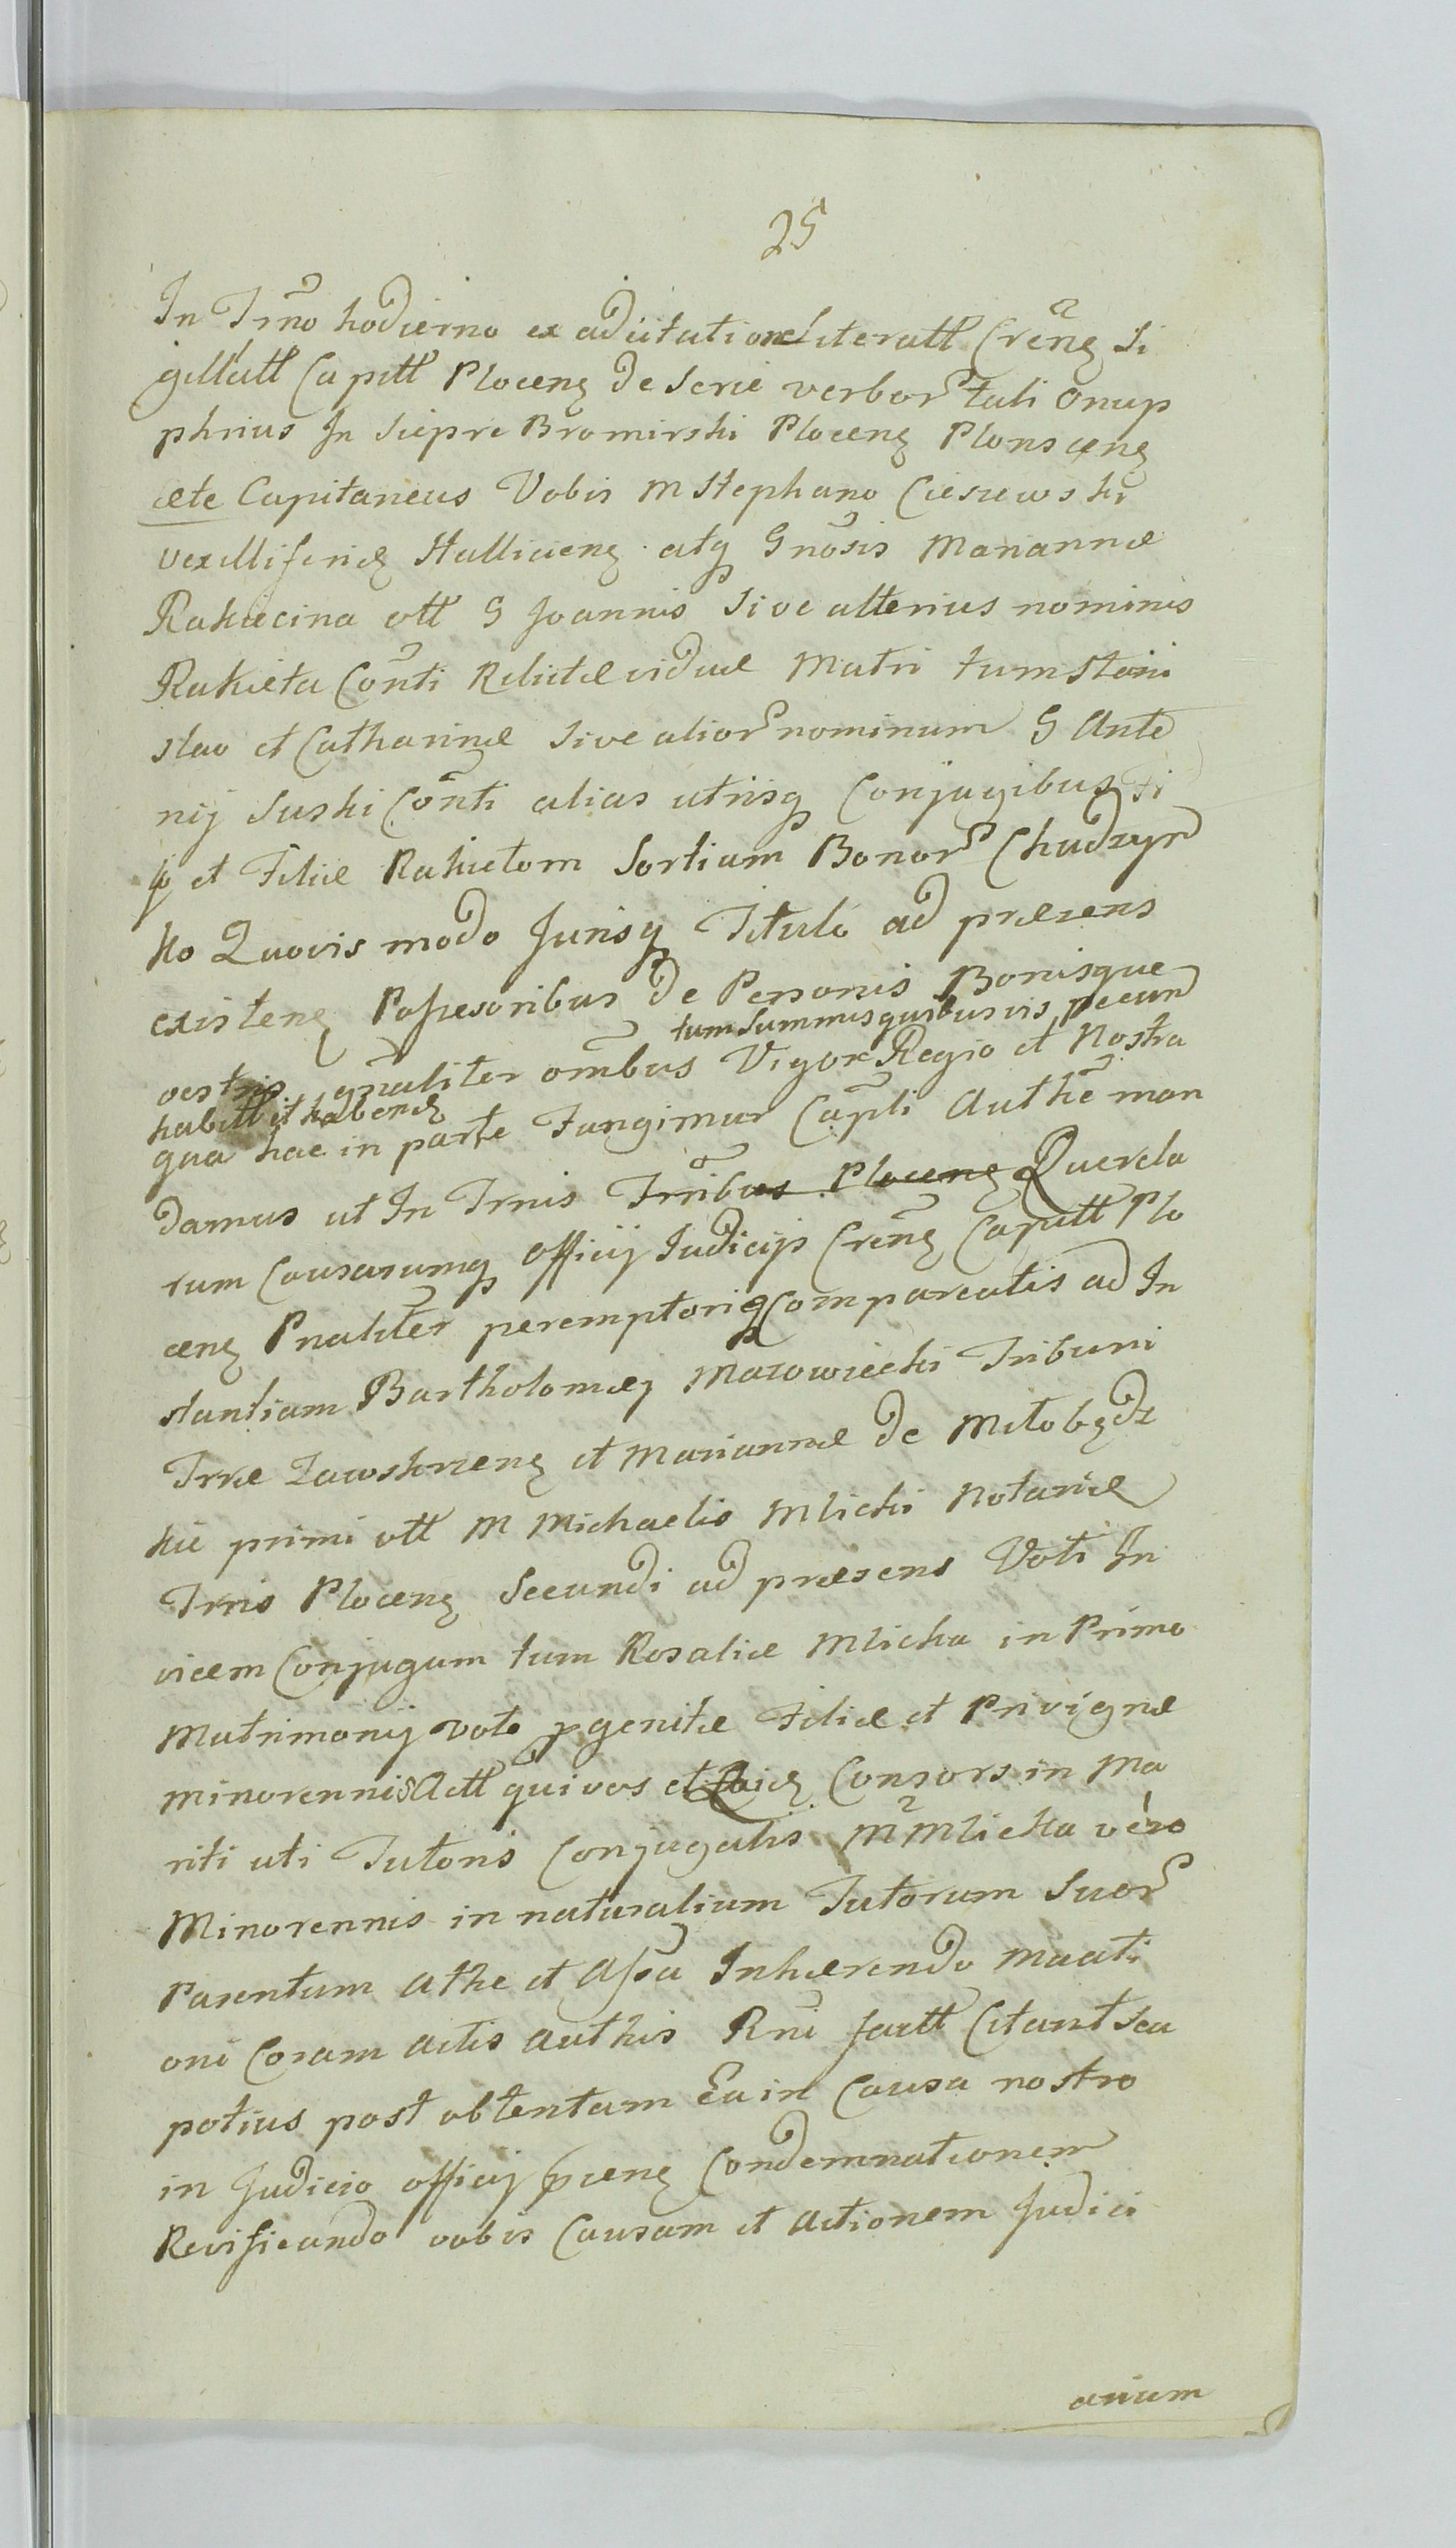 25
In Trno hodierno ex adcitatione Literatt Crenẽ Si
gillatt Capitt Plocenẽ de Serie verbor tali Onup
phrius In Siepre Bromirski Plocenẽ Plonscenẽ
ete Capitaneus Vobis M Stephano Cieszewski
Vexilliferidẽ Halliciens atq Gnosis Mariannæ
Rakiecina ott G Joannis Sive alterius nominis
Rakieta Conti Relictæ viduæ Matri tum Stani
slao et Catharinæ Sive alior nominum G Anto
nij Suski Conti alias utrisq Conjugibus Fi
lio et Filiæ Rakietom Sortium Bonor Chudzyn
ko Quovis modo Jurisq Titulo ad præzens
existenẽ Possesoribus de Personis Bonisque
tum Summis quibusvis pecun
vestris gnaliter ombus Vigore Regio et Nostra
habitt et habendẽ
qua hac in parte Fungimur Capli Authe man
damus ut In Trnis Trribus Plocenẽ Querela
rum Causarumq Officij Judicijs Crenẽ Capitt Plo
cenẽ Pnaliter peremptorieq Compareatis ad In
stantiam Bartholomæj Mazowiecki Tribuni
Trræ Zawskrzenẽ et Mariannæ de Miłobędz
kie primi ott M Michaelis Mlicki Notarii
Trris Plocenẽ Secundi ad præsens Voti In
vicem Conjugum tum Rosaliæ Mlicka in Primo
Matrimonij voto pgenitæ Filiæ et Privignæ
Minorennis Actt qui vos et Consors in Ma
riti uti Tutoris Conjugalis M Mlicka vero
Minorennis in naturalium Tutorum Suor
Parentum Athe et Assa Inhærendo
oni Coram Actis Authis Rni factt Citant Seu
potius post obtentam Ea in Causa nostro
in Judicio officij Condemnationem
Revificando vobis Causam et Actionem Judici
ariam